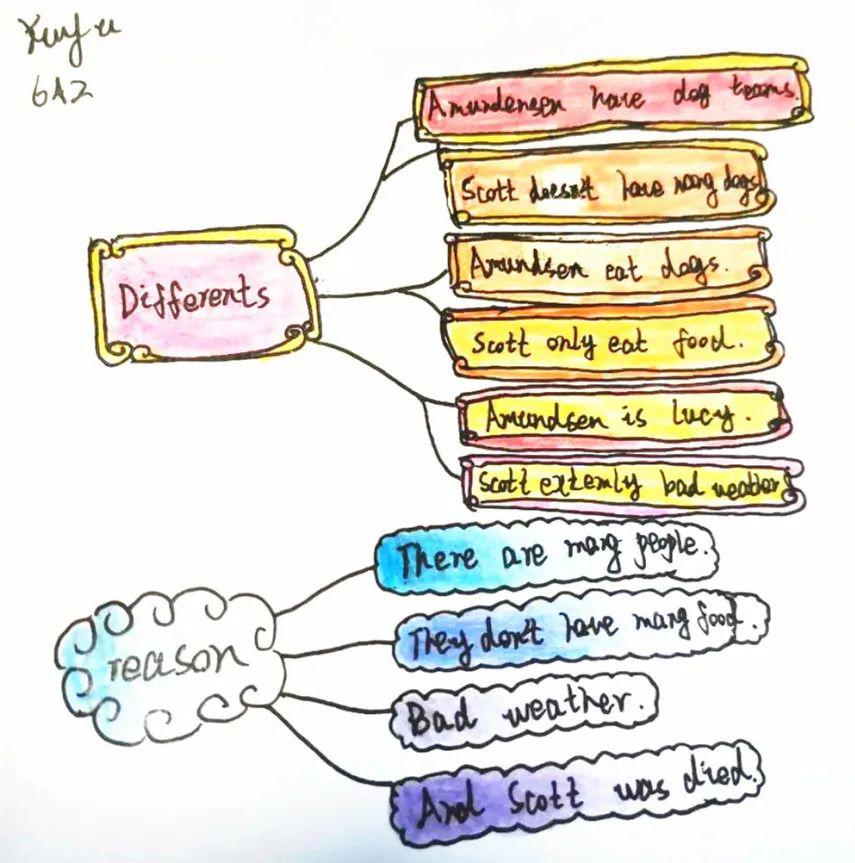 6A2
Amundensen have dog teams.
Scott doesn't have many dogs
Differents
Amundsen eat dogs.
Scott only eat food.
Amundsen is lucy.
Scott extemly bad weather
There are many people.
They don't have many food.
reason
Bad weather.
And Scott was died.